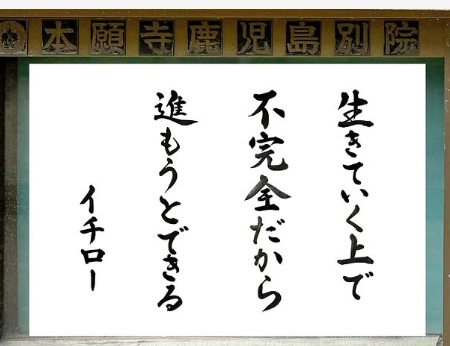 本願寺鹿児島別院
生きていく上で
不完全だから
進もうとできる
イチロー